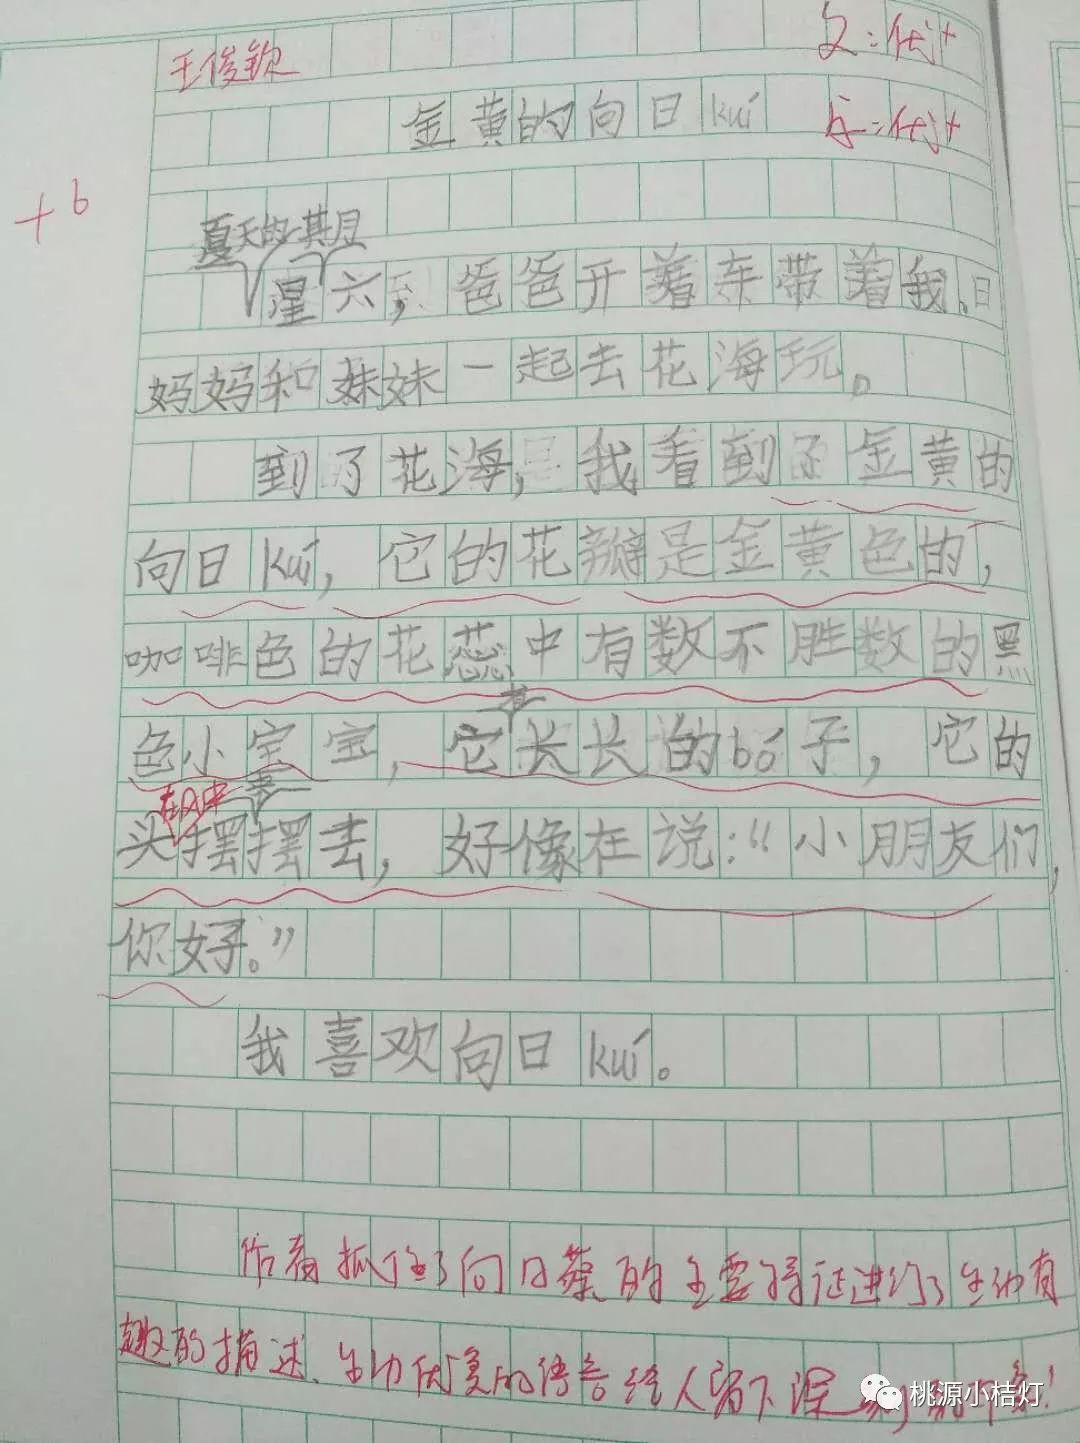 王俊钦
文:优计
金黄的向日kuí
字:优计
+6
夏天的 其月
星六,爸爸开着车带着我、
妈妈和妹妹一起去花海玩。
到了花海,我看到了金黄的
向日kuí,它的花瓣是金黄色的,
咖啡色的花蕊中有数不胜数的黑
色小宝宝,它长长的bó子,它的
着
在风中 来
头摆摆去,好像在说:“小朋友们,
你好。”
我喜欢向日kuí。
作者抓住了向日葵的主要特征进行了生动有
趣的描述、生动优美的语言给人留下深刻
桃源小桔灯